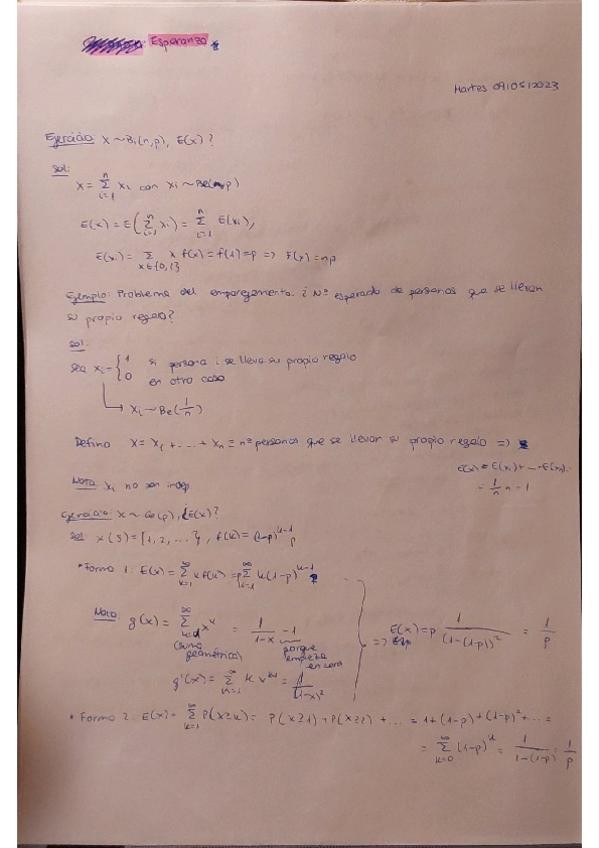 Esperanza
Martes 09/05/2023
Ejercicio: X ~ Bi(n,p), E(X)?
Sol:
X = Σ_{i=1}^{n} Xi con Xi ~ Be(p)
E(X) = E(Σ_{i=1}^{n} Xi) = Σ_{i=1}^{n} E(Xi),
E(Xi) = Σ_{x∈{0,1}} x f(x) = f(1) = p => E(X) = np
Ejemplo: Problema del emparejamiento. ¿Nº esperado de personas que se llevan
su propio regalo?
Sol:
Sea Xi = { 1 si persona i se lleva su propio regalo
0 en otro caso
↳ Xi ~ Be(1/n)
Defino X = X1 + ... + Xn = nº personas que se llevan su propio regalo =>
E(X) = E(X1) + ... + E(Xn) =
= 1/n n = 1
Nota: Xi no son indep.
Ejercicio: X ~ Ge(p), ¿E(X)?
Sol: X(S) = {1, 2, ...}, f(k) = (1-p)^{k-1} p
• Forma 1: E(X) = Σ_{k=1}^{∞} k f(k) = p Σ_{k=1}^{∞} k(1-p)^{k-1}
Nota: g(x) = Σ_{k=1}^{∞} x^k = 1/(1-x) - 1
(suma geométrica) porque empieza en cero
g'(x) = Σ_{k=1}^{∞} k x^{k-1} = 1/(1-x)^2
=> E(X) = p 1/(1-(1-p))^2 = 1/p
• Forma 2: E(X) = Σ_{k=1}^{∞} P(X≥k) = P(X≥1) + P(X≥2) + ... = 1 + (1-p) + (1-p)^2 + ... =
= Σ_{k=0}^{∞} (1-p)^k = 1/(1-(1-p)) = 1/p